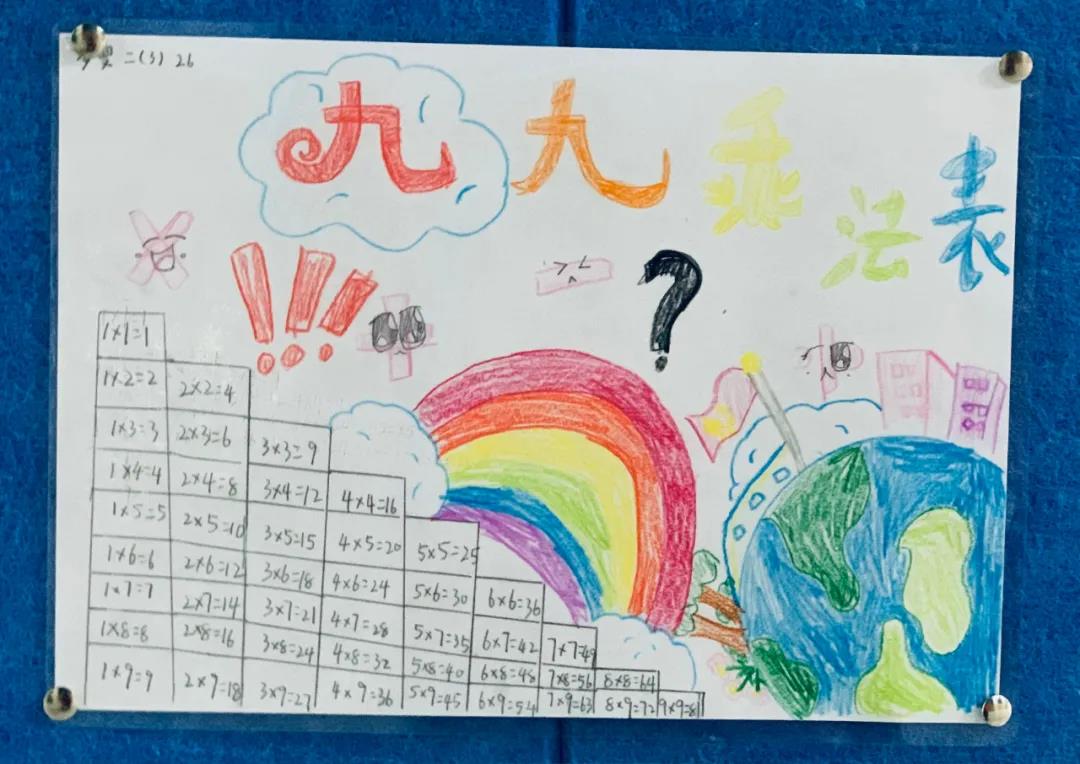 二(3) 26
九九乘法表
!!! ?
1×1=1
1×2=2 2×2=4
1×3=3 2×3=6 3×3=9
1×4=4 2×4=8 3×4=12 4×4=16
1×5=5 2×5=10 3×5=15 4×5=20 5×5=25
1×6=6 2×6=12 3×6=18 4×6=24 5×6=30 6×6=36
1×7=7 2×7=14 3×7=21 4×7=28 5×7=35 6×7=42 7×7=49
1×8=8 2×8=16 3×8=24 4×8=32 5×8=40 6×8=48 7×8=56 8×8=64
1×9=9 2×9=18 3×9=27 4×9=36 5×9=45 6×9=54 7×9=63 8×9=72 9×9=81